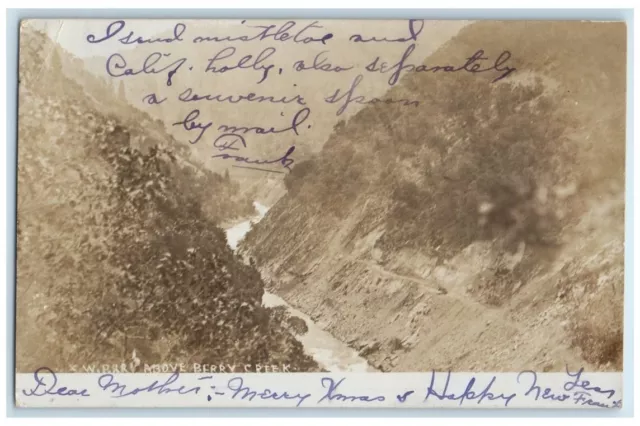 I send mistletoe and
Calif. holly, also separately
a souvenir spoon
by mail.
Frank
ABOVE BERRY CREEK.
Dear Mother:- Merry Xmas & Happy New Year
Frank